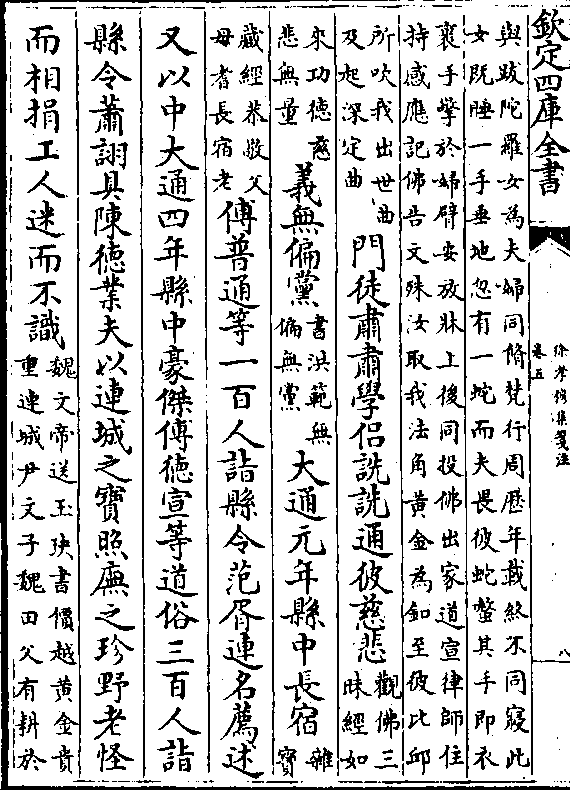 欽定四庫全書
徐孝穆集箋注
卷五
八
與跋陀羅女為夫婦同脩梵行周歷年載終不同寢此
女既睡一手垂地忽有一蛇而夫畏彼蛇螫其手即衣
裹手擎於婦臂安放牀上後同投佛出家道宣律師住
持感應記佛告文殊汝取我法角黃金為釦至彼比邱
所吹我出世曲
及起深定曲
門徒肅肅學侶詵詵通彼慈悲
觀佛三
昧經如
來功德慈
悲無量
義無偏黨
書洪範無
偏無黨
大通元年縣中長宿
雜
寶
藏經恭敬父
母耆長宿老
傅普通等一百人詣縣令范胥連名薦述
又以中大通四年縣中豪傑傅徳宣等道俗三百人詣
縣令蕭詡具陳徳業夫以連城之寶照廡之珍野老怪
而相捐工人迷而不識
魏文帝送玉玦書價越黃金貴
重連城尹文子魏田父有耕於